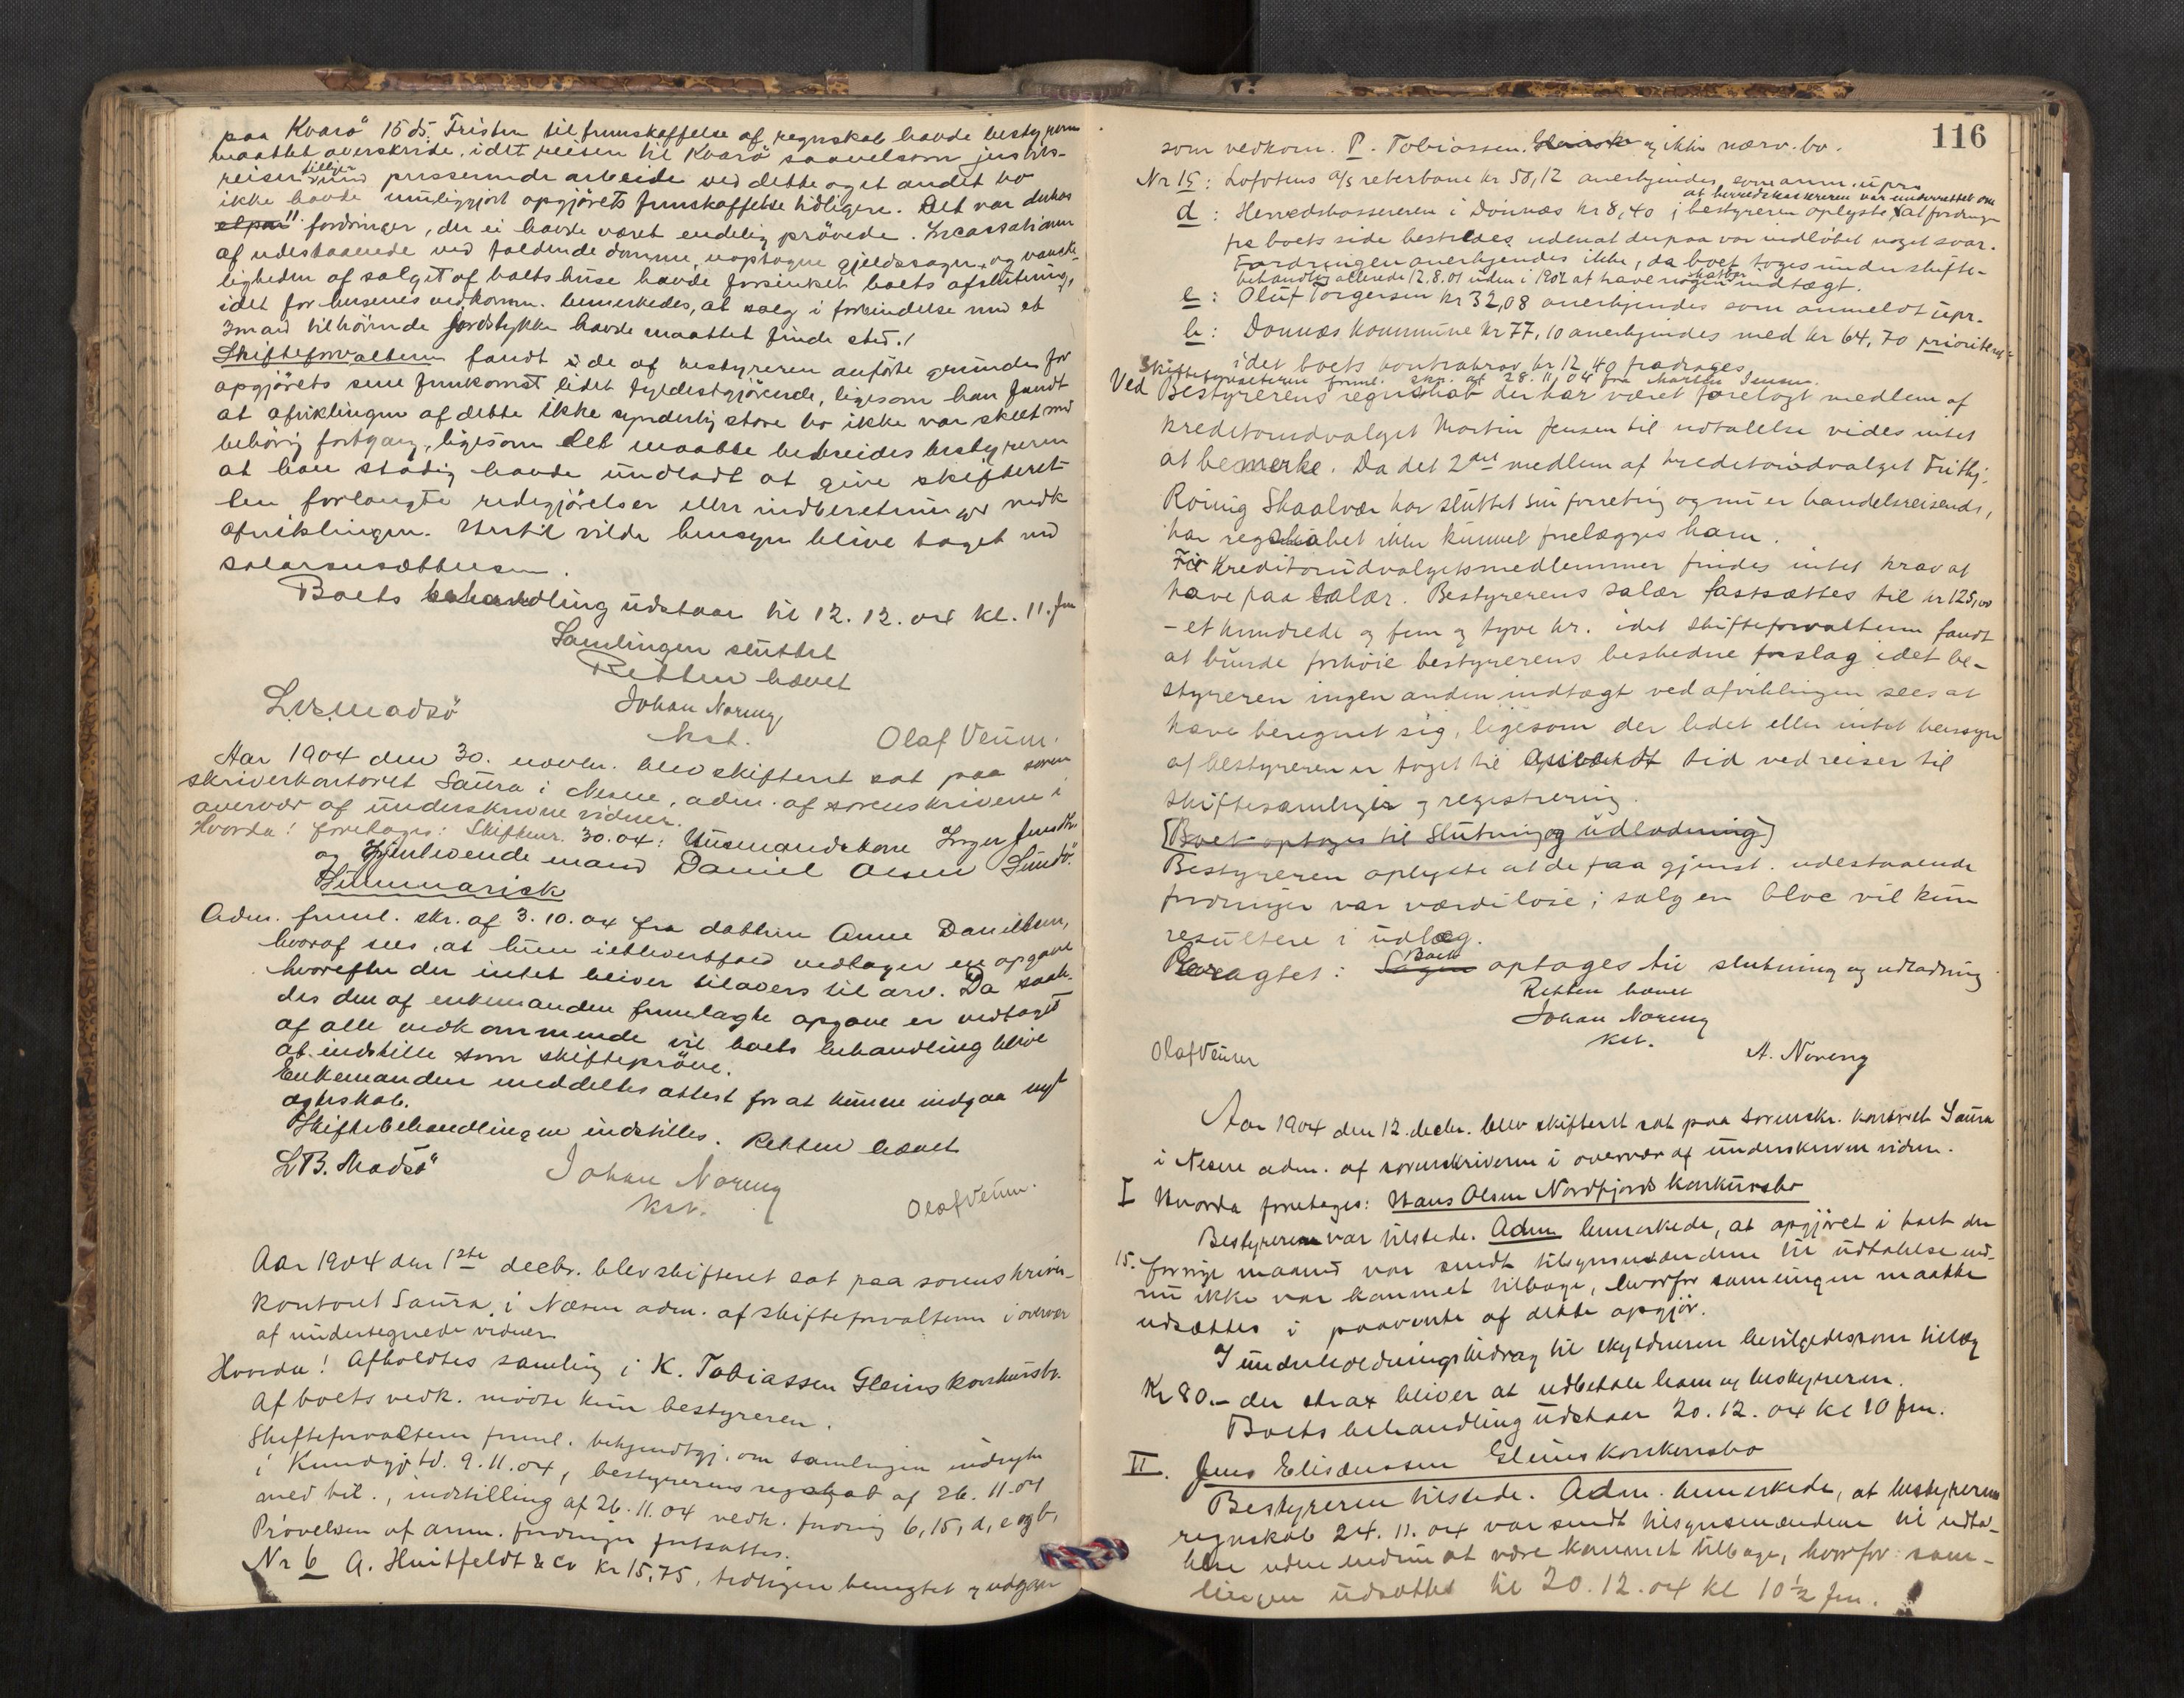 paa Kvarø 15 ds. Fristen til fremskaffelse af regnskab havde bestyreren
maattet overskride, idet reisen til Kvarø saavelsom justits-
reiser tillige med presserende arbeide ved dette og et andet bo
ikke havde muliggjort opgjørets fremskaffelse tidligere. Det var
fordringer, der ei havde været endelig prøvede. Incassationen
af udestaaende ved faldende domme, uoptagne gjeldssager, og vanske-
ligheden af salget af boets huse havde forsinket boets afslutning,
idet for husenes vedkomm. bemerkedes, at salg i forbindelse med et
3mand tilhørende jordstykke havde maattet finde sted.
Skifteforvalteren fandt de af bestyreren anførte grunde for
opgjørets sene fremkomst lidet fyldestgjørende, ligesom han fandt
at afviklingen af dette ikke synderlig store bo ikke var skeet med
behørig fortgang, ligesom det maatte bebreides bestyreren
at han stadig havde undladt at give skifteret-
ten forlangte redegjørelser eller indberetninger vedk
afviklingen. Hertil vilde hensyn blive taget ved
salærsættelsen.
Boets behandling udstaar til 12.12.04 kl. 11. fm
Samlingen sluttet
Retten hævet
L.B. Madsø Johan Noreng kst. Olaf Veum.
Aar 1904 den 30. novbr. blev skifteret sat paa soren
skriverkontoret Saura i Nesne, adm. af sorenskriveren i
overvær af underskrevne vidner.
Hvorda! foretages: Skiftenr. 30.04: Husmandskone Inger Jensdtr.
og gjenlevende mand Daniel Olsen Sundø.
Summarisk
Adm. freml. skr. af 3.10.04 fra datteren Anne Danielsen,
hvoraf sees, at hun iethvertfald vedtager en opgave
hvorefter der intet bliver tilovers til arv. Da saale-
des den af enkemanden fremlagte opgave er vedtaget
af alle vedkommende vil boets behandling blive
at indstille som skifteprøve.
Enkemanden meddeltes attest for at kunne indgaa nyt
egteskab.
Skiftebehandlingen indstilles. Retten hævet
L.B. Madsø Johan Noreng kst. Olaf Veum.
Aar 1904 den 1ste decbr. blev skifteret sat paa sorenskriver-
kontoret Saura, i Næsne adm. af skifteforvalteren i overvær
af undertegnede vidner
Hvorda! Afholdtes samling i K. Tobiassen Gleins konkursbo.
Af boets vedk. mødte kun bestyreren.
Skifteforvalteren freml. bekjendtgj. om samlingen indrykt
i Kundgj.td. 9.11.04, bestyrerens regskab af 26.11.04
med bil., indstilling af 26.11.04 vedk. fordring 6, 15, d, e og h,
Prøvelsen af anm. fordringer fortsattes.
Nr 6 A. Huitfeldt & Co Kr 15,75, tidligere benegtet og udgaar
116
som vedkom. P. Tobiassen Gleinsbo og ikke nærv. bo.
Nr 15: Lofotens a/s reberbane kr 58,12 anerkjendes som anm. upr.
d: Herredskassereren i Dønnæs kr 8,40; bestyreren oplyste at herredskassereren var underrettet om at fordringen
fra boets side bestrides uden at derpaa var indløbet noget svar.
Fordringen anerkjendes ikke, da boet toges under skifte-
behandling allerede 12.8.01 uden i 1902 at have nogen skatbar indtægt.
e: Oluf Torgersen kr 32,08 anerkjendes som anmeldt upr.
h: Dønnæs kommune kr 77,10 anerkjendes med kr 64,70 prioriteret
idet boets kontrakrav kr 12,40 fradrages.
Skifteforvalteren freml. skr. af 28.11.04 fra Martin Jensen.
Ved Bestyrerens regnskab der har været forelagt medlem af
kreditorudvalget Martin Jensen til udtalelse vides intet
at bemerke. Da det 2det medlem af kreditorudvalget Frithj.
Røring Skaalvær har sluttet sin forretning og nu er handelsreisende,
har regnskabet ikke kunnet forelægges ham.
For Kreditorudvalgetsmedlemmer findes intet krav at
have paa salær. Bestyrerens salær fastsættes til kr 125,00
– et hundrede og fem og tyve kr. idet skifteforvalteren fandt
at burde forhøie bestyrerens beskedne forslag idet be-
styreren ingen anden indtægt ved afviklingen sees at
have beregnet sig, ligesom der lidet eller intet hensyn
af bestyreren er taget til tid ved reiser til
skiftesamlinger og registrering.
[Boet optages til slutning og udlodning]
Bestyreren oplyste at de paa gjenst. udestaaende
fordringer var værdiløse; salg en bloc vil kun
resultere i udlæg.
Eragtet: Sagen Boet optages til slutning og udlodning
Retten hævet
Johan Noreng
kst.
Olaf Veum A. Noreng
Aar 1904 den 12. decbr. blev skifteret sat paa sorenskr. kontoret Saura
i Nesne adm. af sorenskriveren i overvær af underskrevne vidner.
I Hvorda foretages: Hans Olsen Nordfjords konkursbo
Bestyreren var tilstede. Adm bemerkede, at opgjøret i boet den
15. forrige maaned var sendt tilsynsmændene til udtalelse
nu ikke var kommet tilbage, hvorfor samlingen maatte
udsættes i paavente af dette opgjør.
I underholdningsbidrag til skyldneren bevilgedes som tillæg
Kr 80.– der strax bliver at udbetale ham og bestyreren.
Boets behandling udstaar 20.12.04 kl 10 fm.
II. Jens Elisæussen Gleins konkursbo
Bestyreren tilstede. Adm. bemerkede, at bestyrerens
regnskab 24.11.04 var sendt tilsynsmændene til udta-
lelse uden endnu at være kommet tilbage, hvorfor sam-
lingen udsættes til 20.12.04 kl 10½ fm.